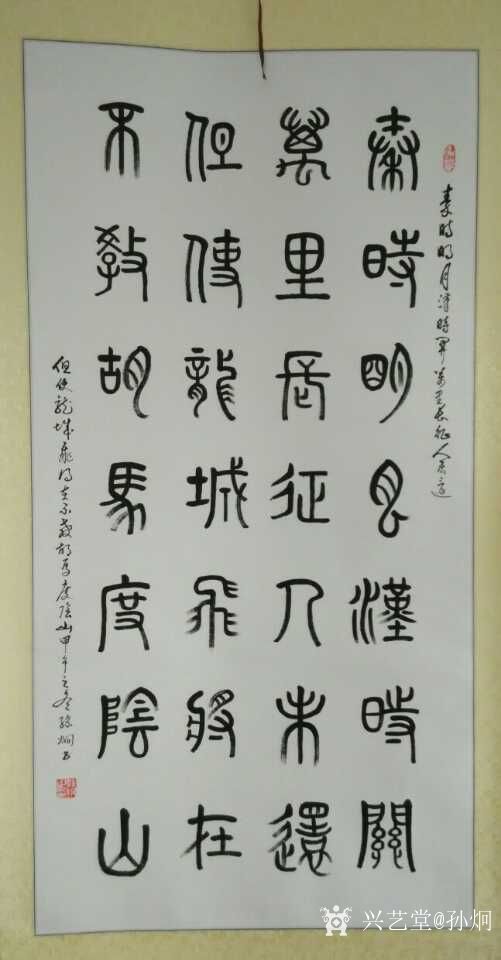 秦時明月漢時關
萬里長征人未還
但使龍城飛將在
不教胡馬度陰山
秦時明月漢時関萬里长征人未還
但使龙城飛将在不教胡馬度陰山甲午之冬孫炯书
兴艺堂@孙炯